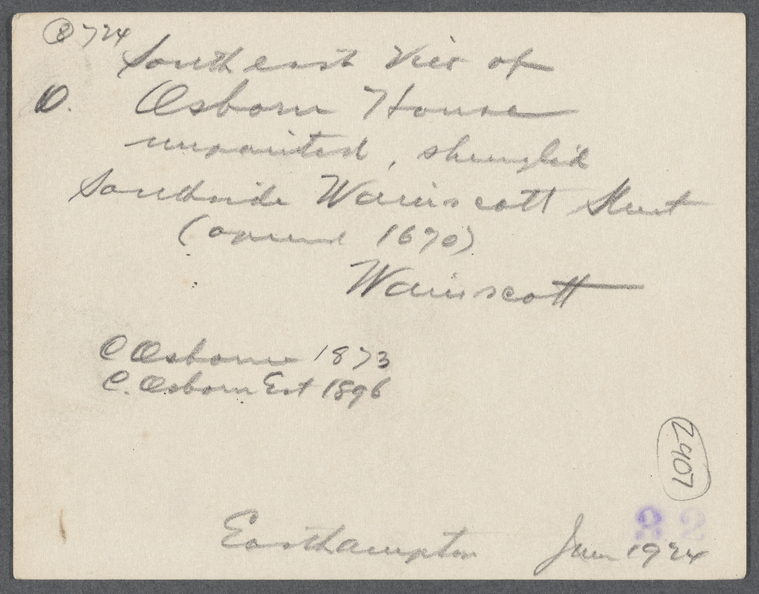 8724
Southeast View of
O. Osborn House
unpainted, shingled
Southside Wainscott Street
(opened 1670)
Wainscott
C Osborne 1873
C. Osborn Est 1896
2907
32
Easthampton June 1924